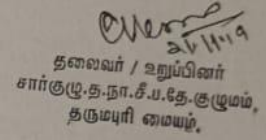 21/11/19
தலைவர் / உறுப்பினர்
சார்குழு.த.நா.சீ.ப.தே.குழுமம்,
தருமபுரி மையம்.